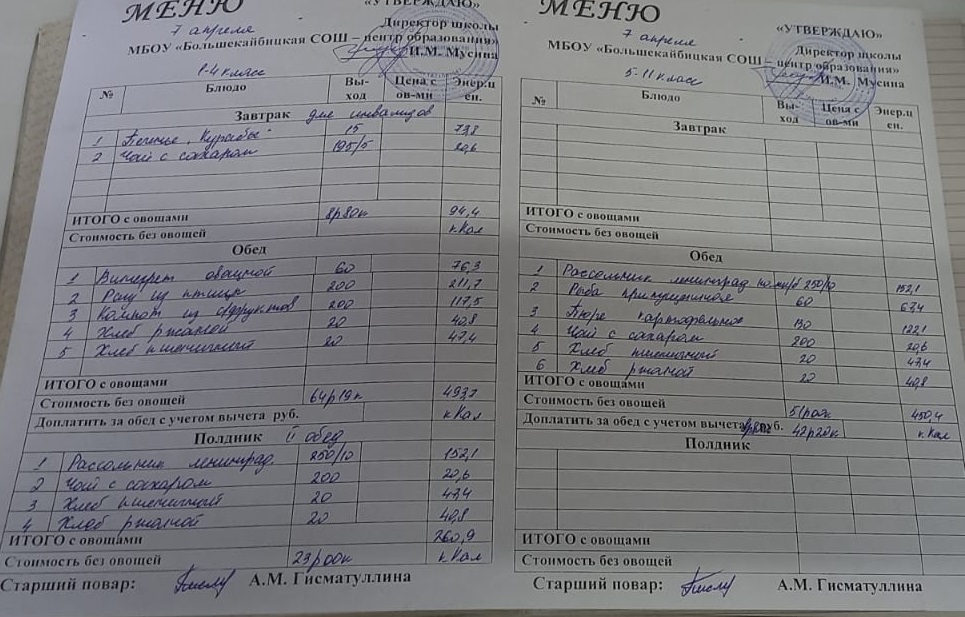 МЕНЮ
«УТВЕРЖДАЮ»
7 апреля
Директор школы
МБОУ «Большекайбицкая СОШ – центр образования»
И.М. Мусина
1-4 класс
№ Блюдо Вы-ход Цена с ов-ми Энер.ц ен.
Завтрак для инвалидов
1 Печенье „Курабье“ 15 73,8
2 Чай с сахаром 195/5 20,6
ИТОГО с овощами 8р80к 94,4
Стоимость без овощей кКал
Обед
1 Винегрет овощной 60 76,3
2 Рагу из птицы 200 211,7
3 Компот из сухофруктов 200 117,5
4 Хлеб ржаной 20 40,8
5 Хлеб пшеничный 20 47,4
ИТОГО с овощами
Стоимость без овощей 64р19к 493,7
Доплатить за обед с учетом вычета руб. кКал
Полдник II обед
1 Рассольник ленинград. 250/10 152,1
2 Чай с сахаром 200 20,6
3 Хлеб пшеничный 20 47,4
4 Хлеб ржаной 20 40,8
ИТОГО с овощами 260,9
Стоимость без овощей 23р00к кКал
Старший повар: А.М. Гисматуллина
МЕНЮ
«УТВЕРЖДАЮ»
7 апреля
Директор школы
МБОУ «Большекайбицкая СОШ – центр образования»
И.М. Мусина
5-11 класс
№ Блюдо Вы-ход Цена с ов-ми Энер.ц ен.
Завтрак
ИТОГО с овощами
Стоимость без овощей
Обед
1 Рассольник ленинград 250/10 152,1
2 Рыба припущенная 60 67,4
3 Пюре картофельное 130 122,1
4 Чай с сахаром 200 20,6
5 Хлеб пшеничный 20 47,4
6 Хлеб ржаной 20 40,8
ИТОГО с овощами
Стоимость без овощей 450,4
Доплатить за обед с учетом вычета руб. 42р20к кКал
Полдник
ИТОГО с овощами
Стоимость без овощей
Старший повар: А.М. Гисматуллина